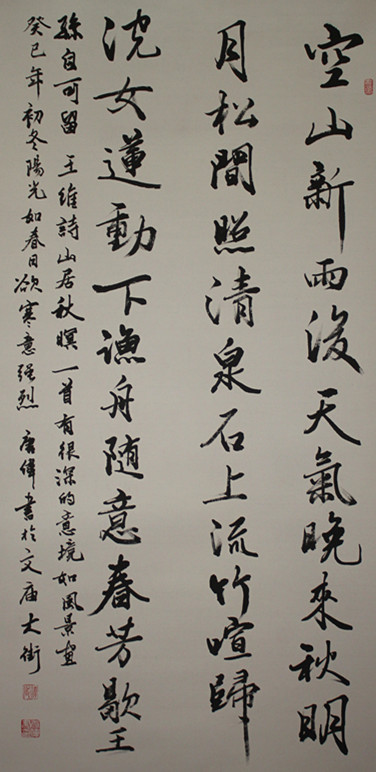 空山新雨後天氣晚來秋明
月松間照清泉石上流竹喧歸
浣女蓮動下漁舟随意春芳歇王
孫自可留 王維詩山居秋暝一首有很深的意境如風景画
癸巳年初冬陽光如春日欲寒意强烈 唐偉書於文庙大街